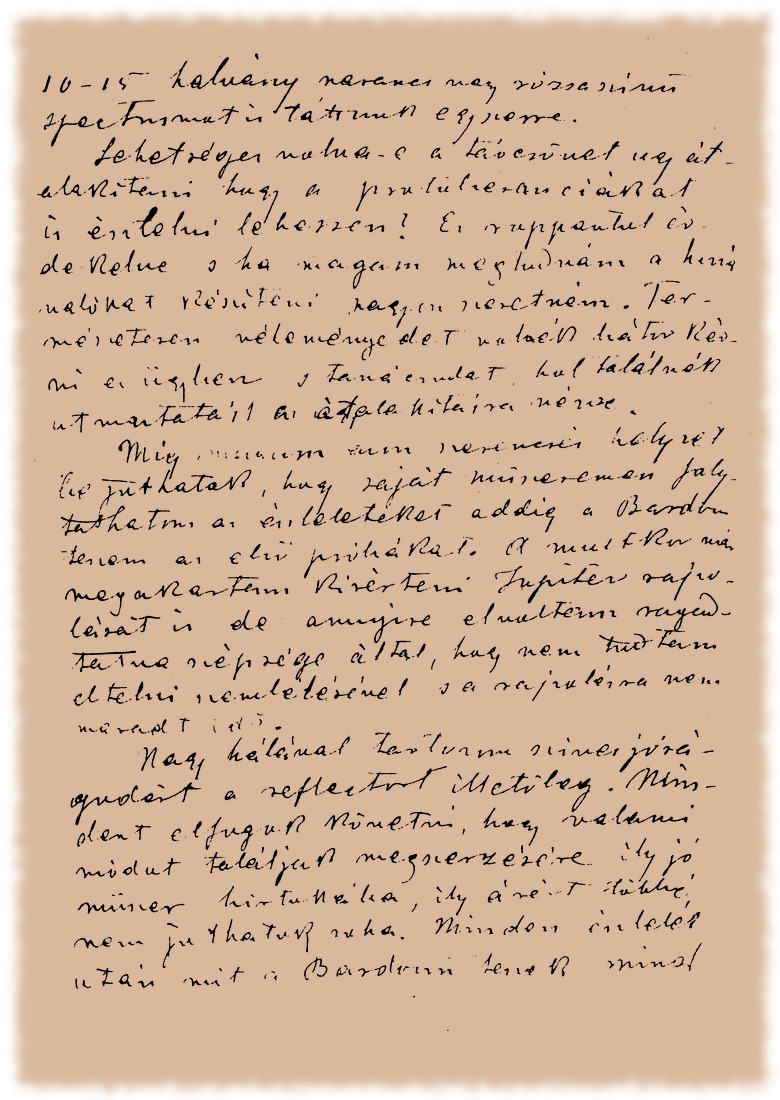 10-15 halvány narancs vagy rózsaszínű
spectrumot is látunk egyszerre.
Lehetséges volna-e a távcsövet ugy át-
alakítani hogy a protuberanciákat
is észlelni lehessen? Ez roppantul ér-
dekelne s ha magam megtudnám a hozzá
valókat készíteni nagyon szeretném. Ter-
mészetesen véleményedet volnék bátor kér-
ni ez ügyben s tanácsodat, hol találnék
utmutatást az átalakitásra nézve.
Mig szerencsés helyzet
be juthatok, hogy saját műszeremen foly-
tathatom az észleléseket addig a Bardou
teszem az első próbákat. A multkor már
megakartam kisérteni Jupiter rajzo-
lását is de annyira elvoltam ragad-
tatva szépsége által, hogy nem tudtam
eltelni szemlélésével s a rajzolásra nem
maradt idő.
Nagy hálával tartozom szives jósá-
godért a reflectort illetőleg. Min-
dent elfogok követni, hogy valami
módot találjak megszerzésére ily jó
műszer birtokába, ily árért többé
nem juthatok soha. Minden észlelés
után mit a Bardoun teszek mind